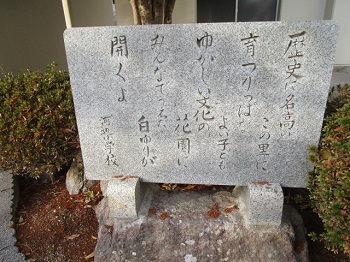 歴史に名高い
この里に
育つりっぱな
よい子ども
ゆかしい文化の
花園に
みんなでつくった
白ゆりが
開くよ
学校